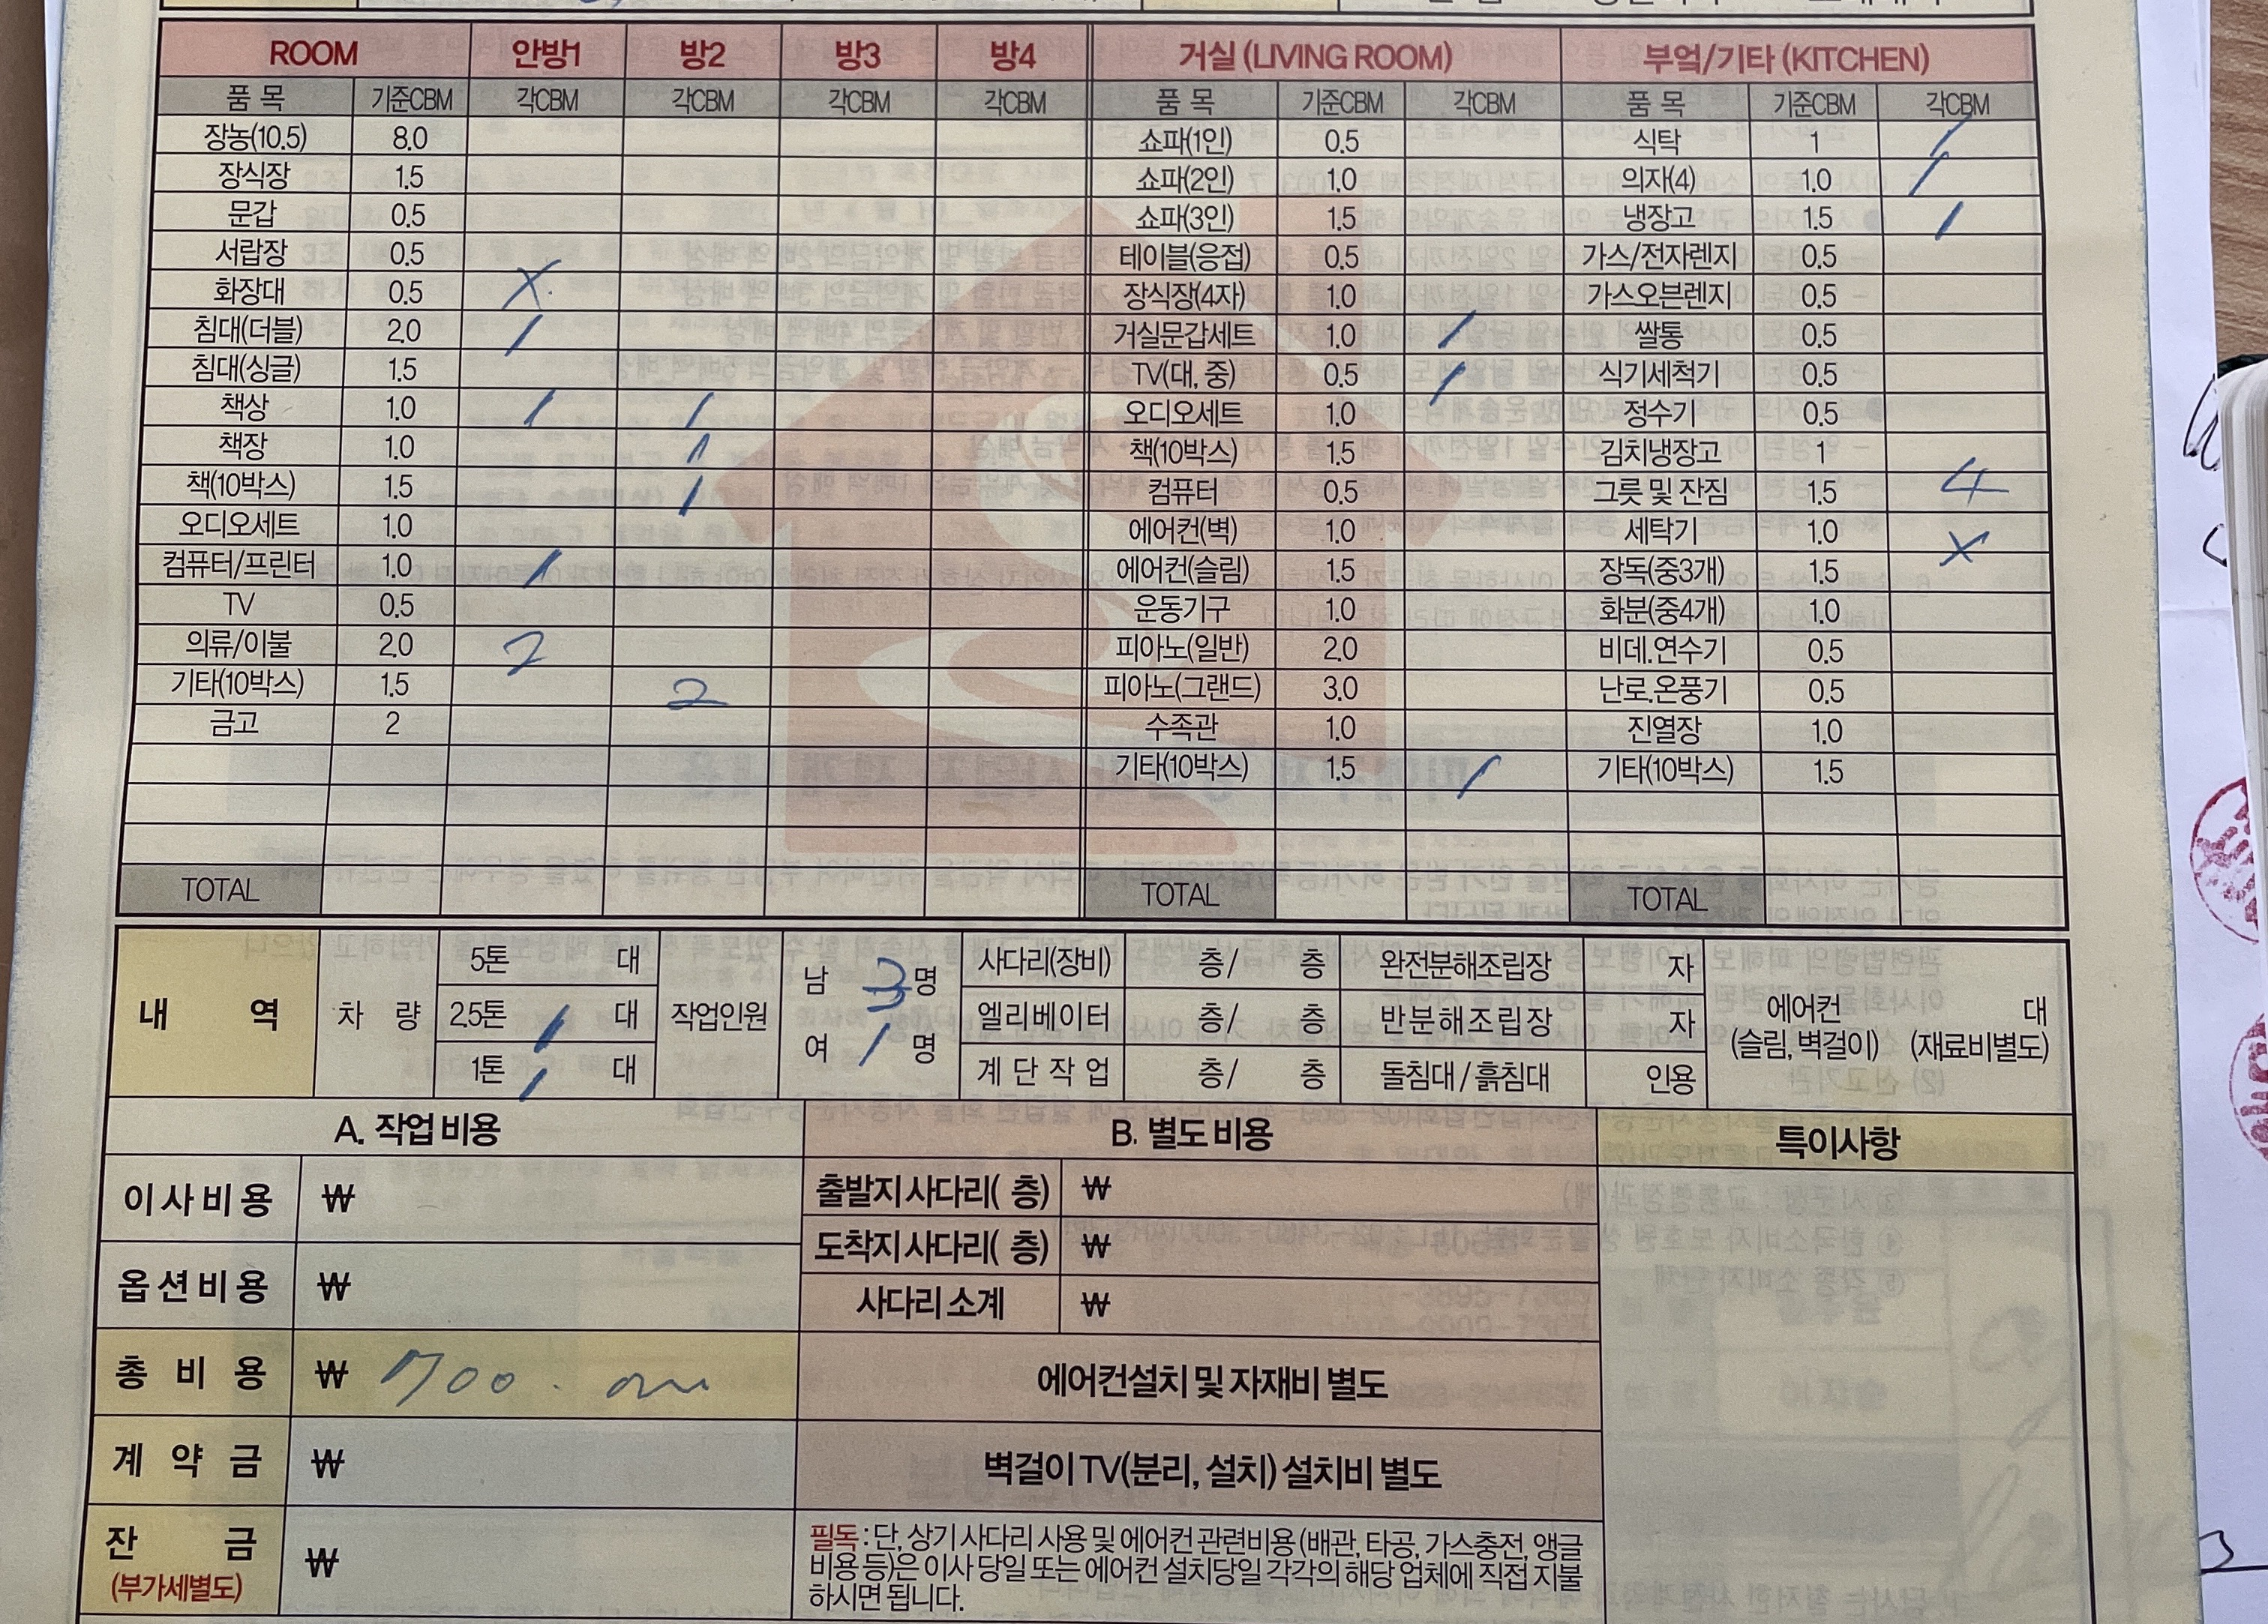 ROOM 안방1 방2 방3 방4 거실 (LIVING ROOM) 부엌/기타 (KITCHEN)
품 목 기준CBM 각CBM 각CBM 각CBM 각CBM 품 목 기준CBM 각CBM 품 목 기준CBM 각CBM
장농(10.5) 8.0 쇼파(1인) 0.5 식탁 1 /
장식장 1.5 쇼파(2인) 1.0 의자(4) 1.0 /
문갑 0.5 쇼파(3인) 1.5 냉장고 1.5 /
서랍장 0.5 테이블(응접) 0.5 가스/전자렌지 0.5
화장대 0.5 X 장식장(4자) 1.0 가스오븐렌지 0.5
침대(더블) 2.0 / 거실문갑세트 1.0 / 쌀통 0.5
침대(싱글) 1.5 TV(대, 중) 0.5 / 식기세척기 0.5
책상 1.0 / / 오디오세트 1.0 정수기 0.5
책장 1.0 / 책(10박스) 1.5 김치냉장고 1
책(10박스) 1.5 / 컴퓨터 0.5 그릇 및 잔짐 1.5 4
오디오세트 1.0 에어컨(벽) 1.0 세탁기 1.0 X
컴퓨터/프린터 1.0 / 에어컨(슬림) 1.5 장독(중3개) 1.5
TV 0.5 운동기구 1.0 화분(중4개) 1.0
의류/이불 2.0 2 피아노(일반) 2.0 비데.연수기 0.5
기타(10박스) 1.5 2 피아노(그랜드) 3.0 난로.온풍기 0.5
금고 2 수족관 1.0 진열장 1.0
기타(10박스) 1.5 / 기타(10박스) 1.5
TOTAL TOTAL TOTAL
내 역 차 량 작업인원
5톤 대
2.5톤 / 대
1톤 / 대
남 3 명
여 / 명
사다리(장비) 층/ 층 완전분해조립장 자
엘리베이터 층/ 층 반분해조립장 자
계 단 작 업 층/ 층 돌침대/흙침대 인용
에어컨 대
(슬림, 벽걸이) (재료비별도)
A. 작업 비용 B. 별도 비용 특이사항
이 사 비 용 ₩
옵 션 비 용 ₩
총 비 용 ₩ 700.
계 약 금 ₩
잔 금 ₩
(부가세별도)
출발지 사다리( 층) ₩
도착지 사다리( 층) ₩
사다리 소계 ₩
에어컨설치 및 자재비 별도
벽걸이 TV(분리, 설치) 설치비 별도
필독 : 단, 상기 사다리 사용 및 에어컨 관련비용 (배관, 타공, 가스충전, 앵글
비용 등)은 이사 당일 또는 에어컨 설치당일 각각의 해당 업체에 직접 지불
하시면 됩니다.